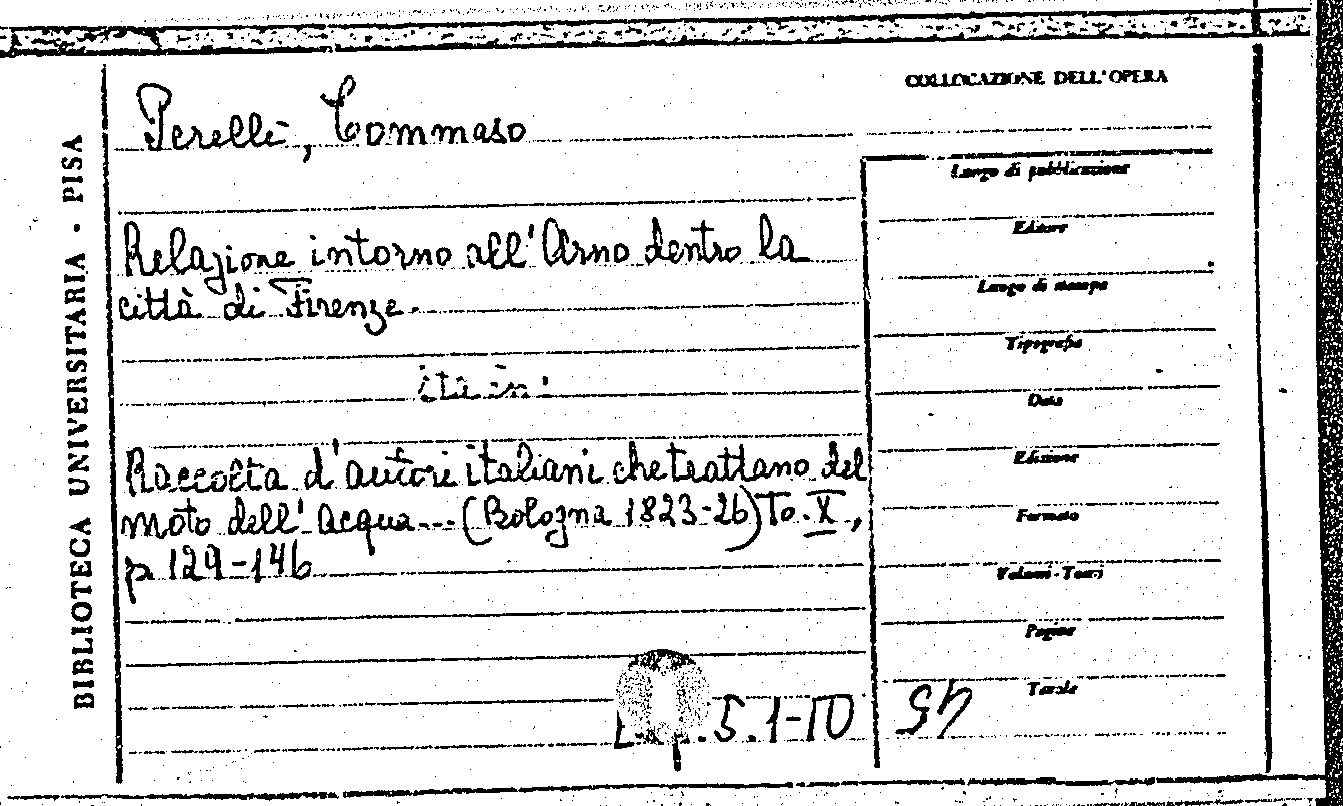 BIBLIOTECA UNIVERSITARIA - PISA
COLLOCAZIONE DELL'OPERA
Perelli, Tommaso
Relazione intorno all'Arno dentro la
città di Firenze.
sta in:
Raccolta d'autori italiani che trattano del
moto dell'acqua... (Bologna 1823-26) To. X,
p. 129-146
.5.1-10
Luogo di pubblicazione
Editore
Luogo di stampa
Tipografia
Data
Edizione
Formato
Volumi - Tomi
Pagine
Tavole